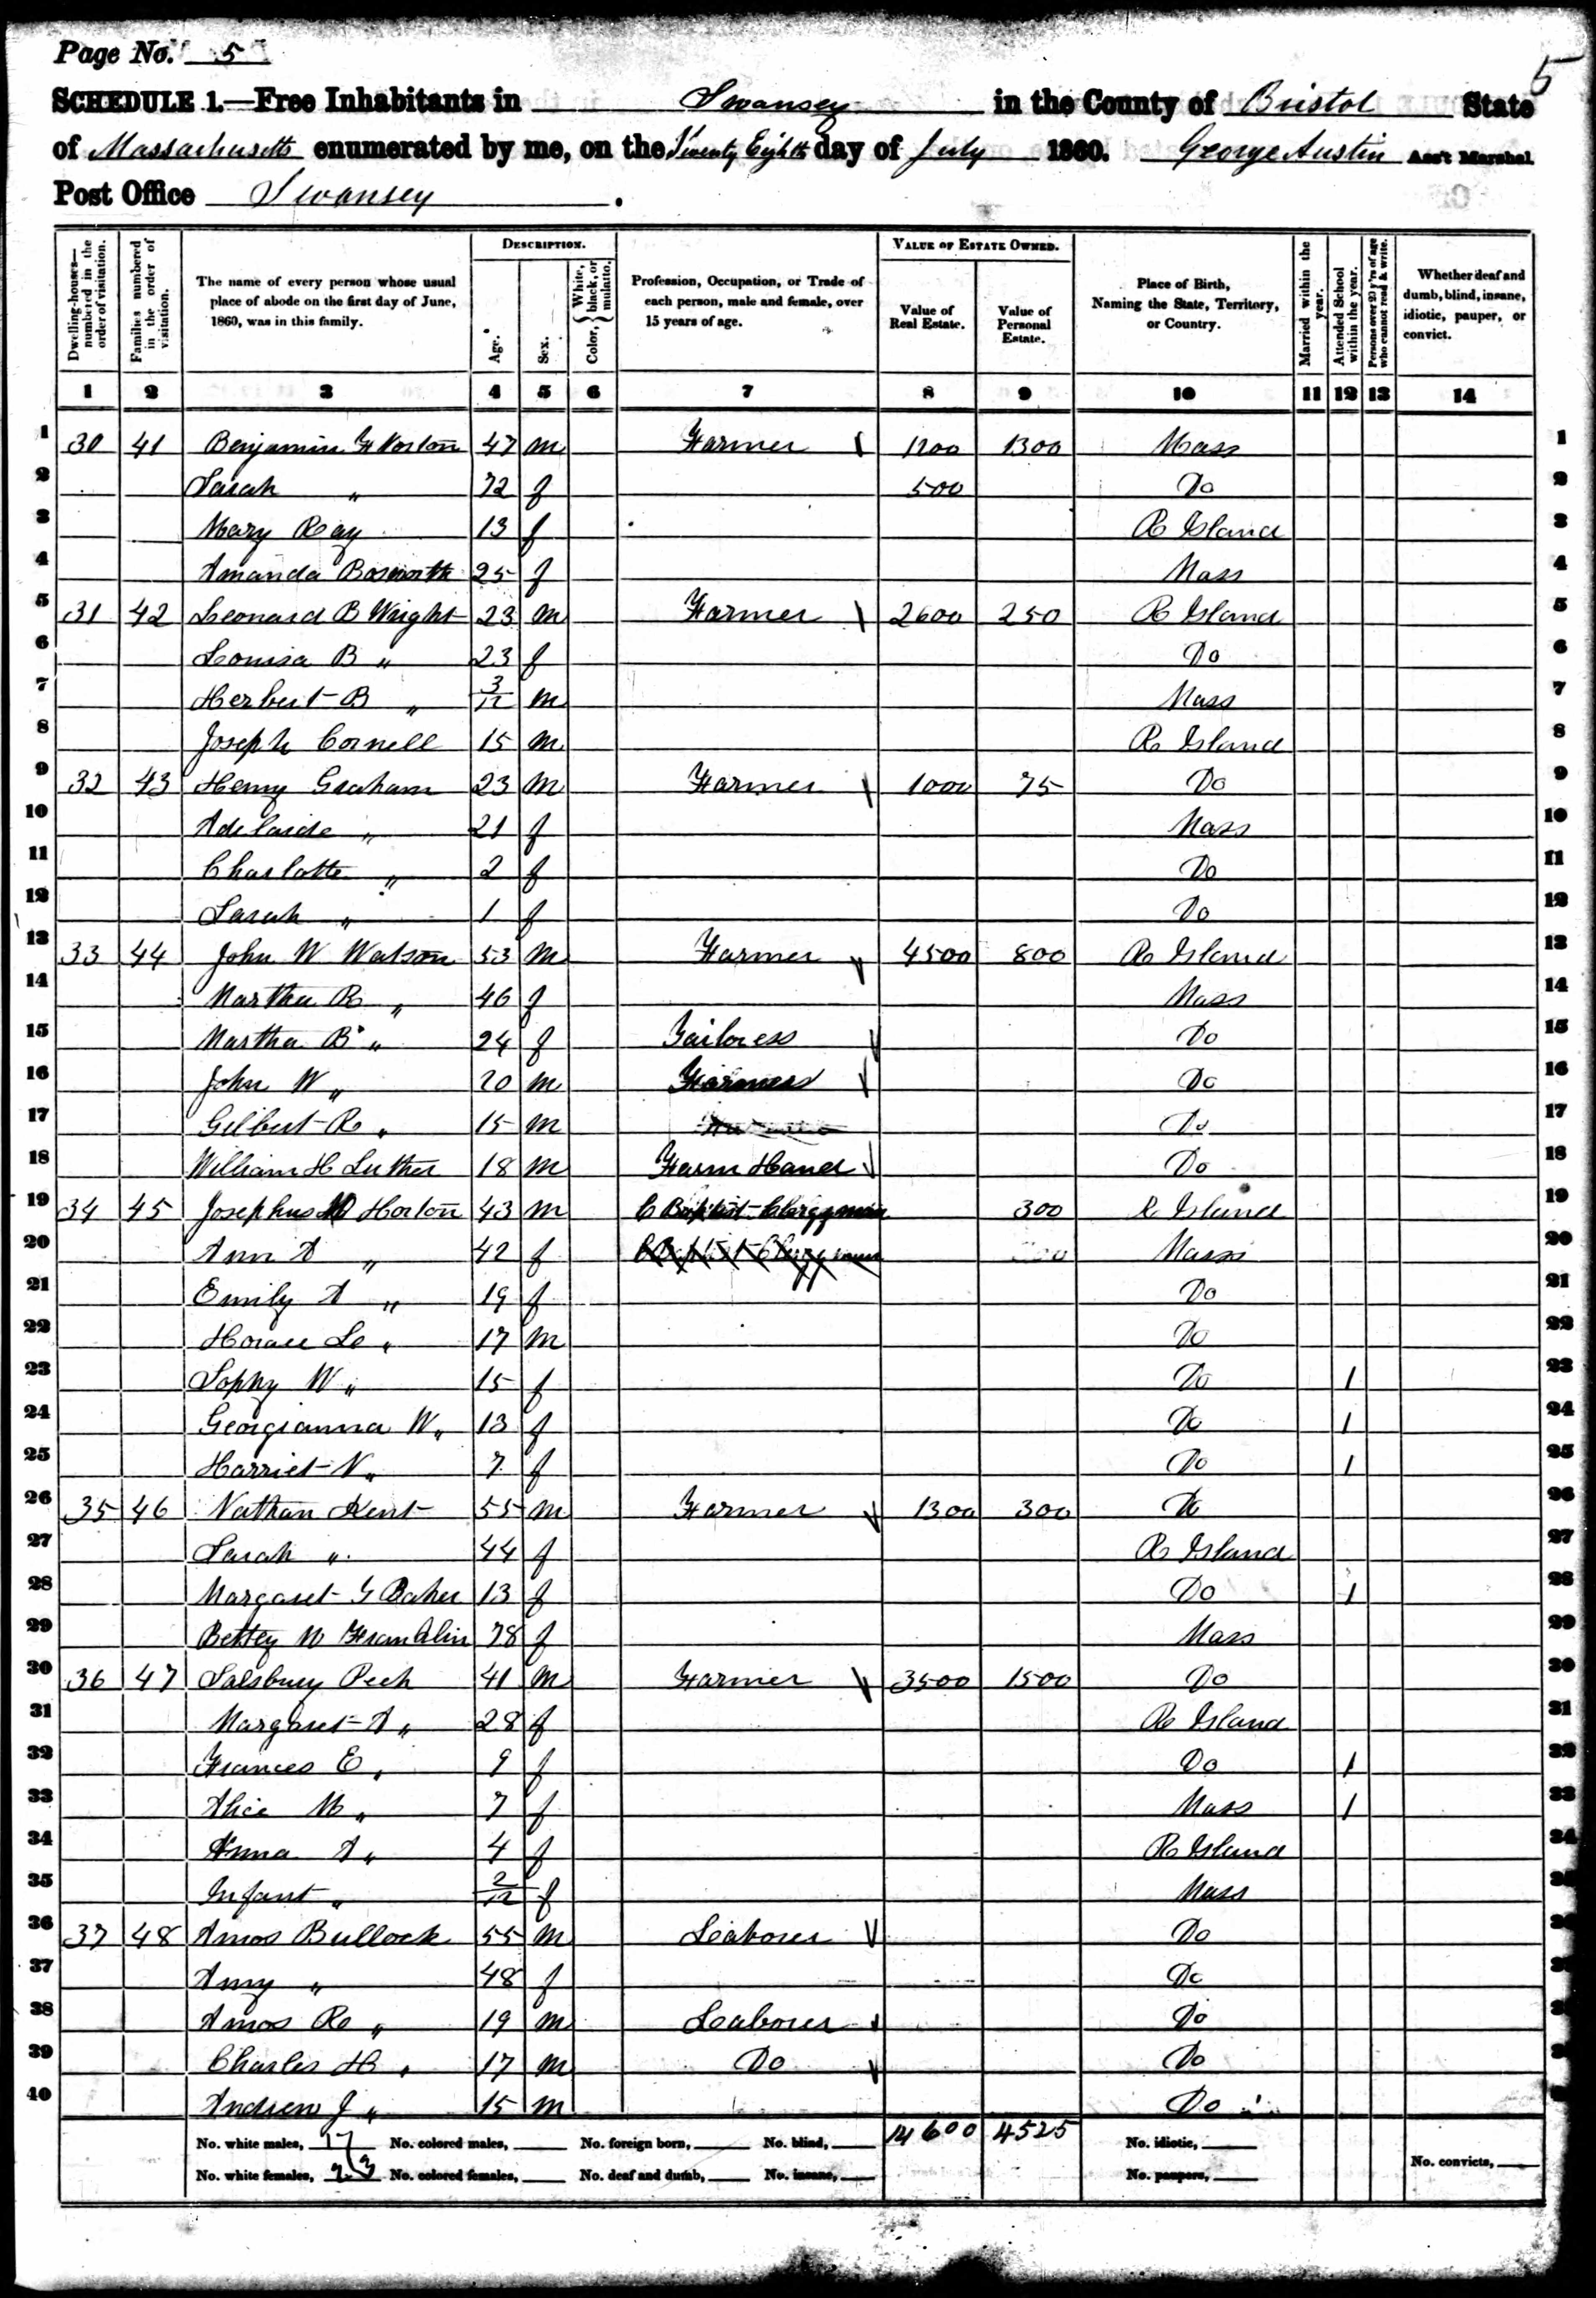 Page No. 5
5
SCHEDULE 1.—Free Inhabitants in Swansey in the County of Bristol State
of Massachusetts enumerated by me, on the Twenty Eighth day of July 1860. George Austin Ass't Marshal
Post Office Swansey.
Dwelling-houses—numbered in the order of visitation. Families numbered in the order of visitation. The name of every person whose usual place of abode on the first day of June, 1860, was in this family. DESCRIPTION. Age. Sex. Color, {White, black, or mulatto. Profession, Occupation, or Trade of each person, male and female, over 15 years of age. VALUE OF ESTATE OWNED. Value of Real Estate. Value of Personal Estate. Place of Birth, Naming the State, Territory, or Country. Married within the year. Attended School within the year. Persons over 20 y'rs of age who cannot read & write. Whether deaf and dumb, blind, insane, idiotic, pauper, or convict.
1 2 3 4 5 6 7 8 9 10 11 12 13 14
1 30 41 Benjamin Norton 47 m Farmer 1200 1300 Mass 1
2 Sarah " 72 f 500 Do 2
3 Mary Ray 13 f R Island 3
4 Amanda Bosworth 25 f Mass 4
5 31 42 Leonard B Wright 23 m Farmer 2600 250 R Island 5
6 Louisa B " 23 f Do 6
7 Herbert B " 3/12 m Mass 7
8 Joseph Cornell 15 m R Island 8
9 32 43 Henry Graham 23 m Farmer 1000 75 Do 9
10 Adelaide " 21 f Mass 10
11 Charlotte " 2 f Do 11
12 Sarah " 1 f Do 12
13 33 44 John W Watson 53 m Farmer 4500 800 R Island 13
14 Martha R " 46 f Mass 14
15 Martha B " 24 f Tailoress Do 15
16 John W " 20 m Farmer Do 16
17 Gilbert R " 15 m Do 17
18 William H Luther 18 m Farm Hand Do 18
19 34 45 Josephus W Horton 43 m C Baptist Clergyman 300 R Island 19
20 Ann A " 42 f C Baptist Clergyman Mass 20
21 Emily A " 19 f Do 21
22 Horace L " 17 m Do 22
23 Sophy W " 15 f Do 1 23
24 Georgianna W " 13 f Do 1 24
25 Harriet N " 7 f Do 1 25
26 35 46 Nathan Kent 55 m Farmer 1300 300 Do 26
27 Sarah " 44 f R Island 27
28 Margaret G Baker 13 f Do 1 28
29 Bettey W Franklin 78 f Mass 29
30 36 47 Salsbury Peck 41 m Farmer 3500 1500 Do 30
31 Margaret A " 28 f R Island 31
32 Frances E " 9 f Do 1 32
33 Alice M " 7 f Mass 1 33
34 Anna A " 4 f R Island 34
35 Infant " 2/12 f Mass
36 37 48 Amos Bullock 55 m Laborer Do
37 Amy " 48 f Do
38 Amos R " 19 m Laborer Do
39 Charles H " 17 m Do Do
40 Andrew J " 15 m Do
No. white males, 17 No. colored males, No. foreign born, No. blind, 14600 4525 No. idiotic,
No. white females, 23 No. colored females, No. deaf and dumb, No. insane, No. paupers, No. convicts,